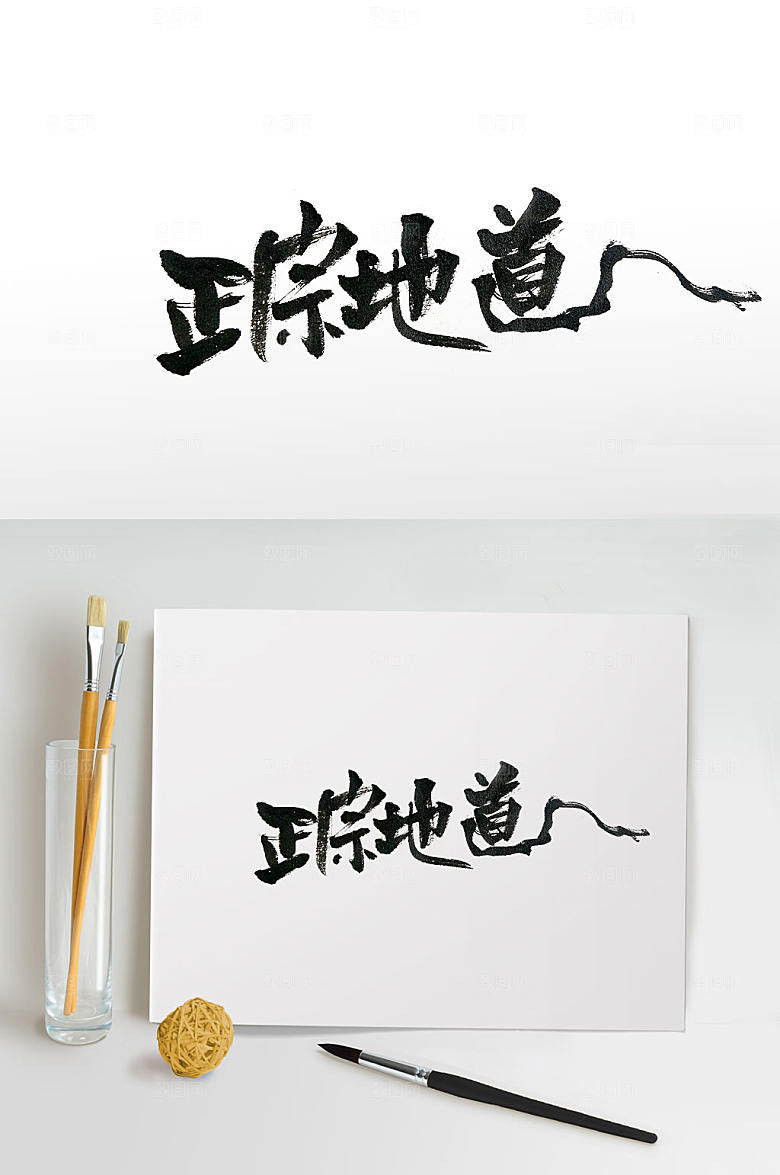 正宗地道
正宗地道